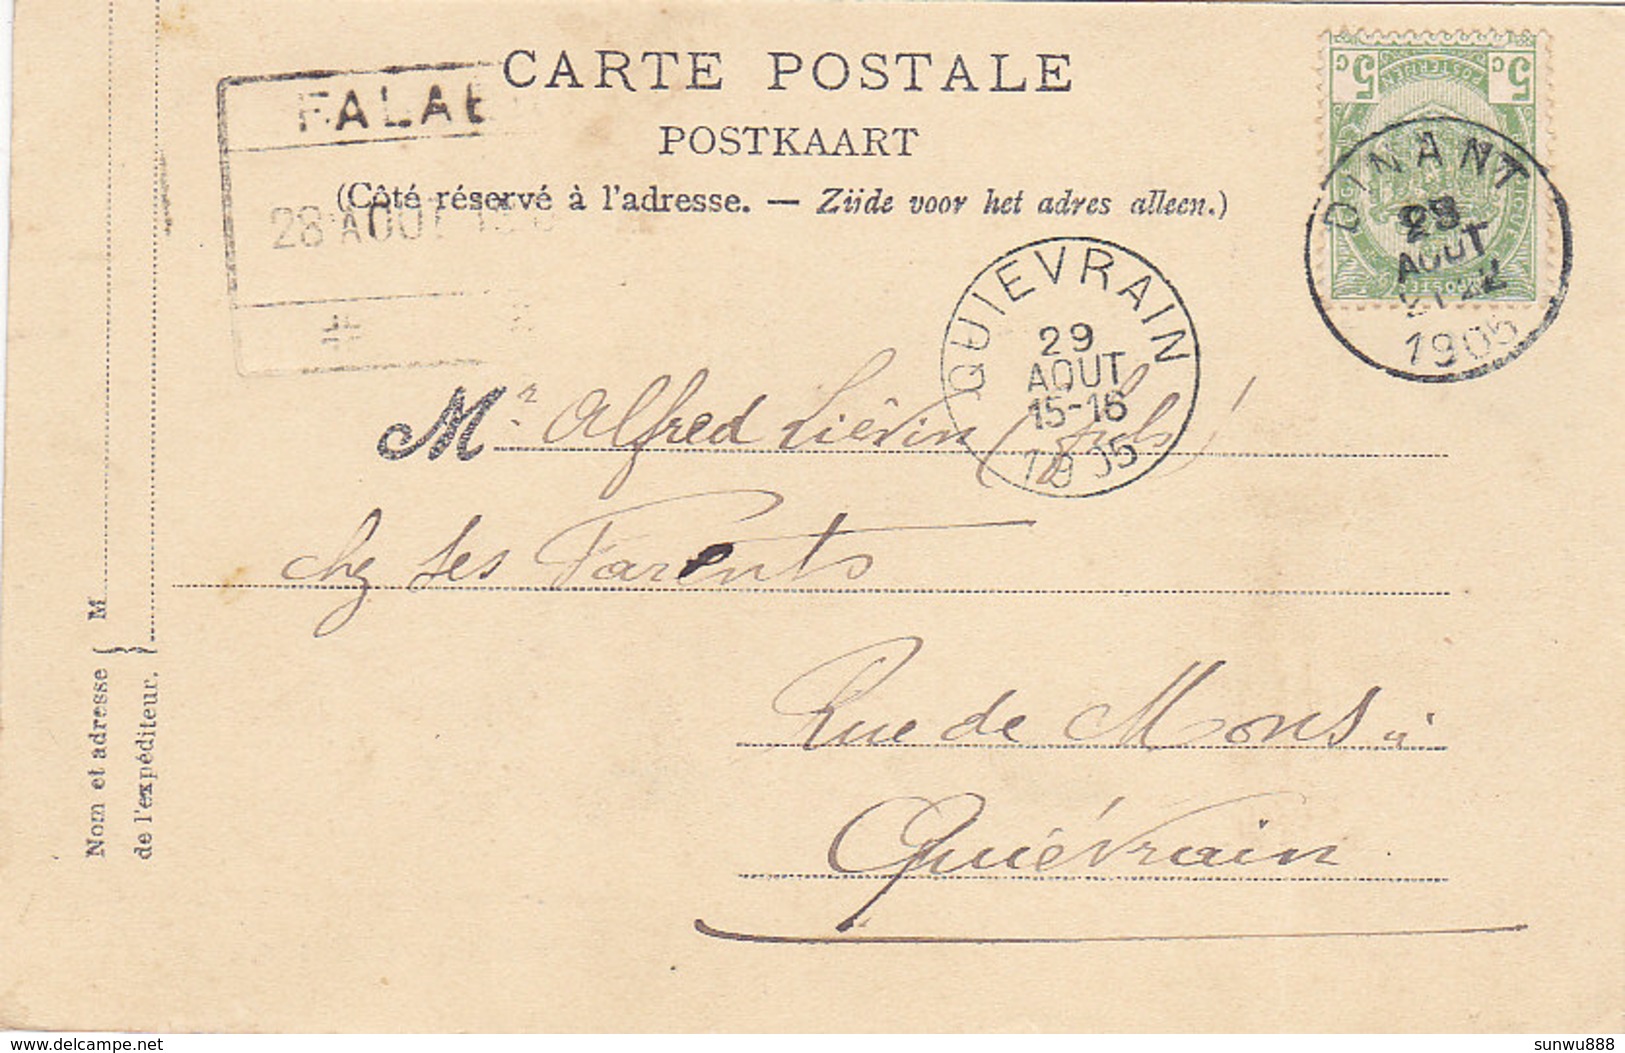 CARTE POSTALE
POSTKAART
(Côté réservé à l'adresse. — Zijde voor het adres alleen.)
FALAE
28 AOUT 190
5 c 5 c
DINANT
28
AOUT
1905
QUIEVRAIN
29
AOUT
15-16
1905
Mr Alfred Liévin (fils)
chez ses Parents
Rue de Mons à
Quiévrain
Nom et adresse { M
de l'expéditeur. }
delcampe.net
sunwu888